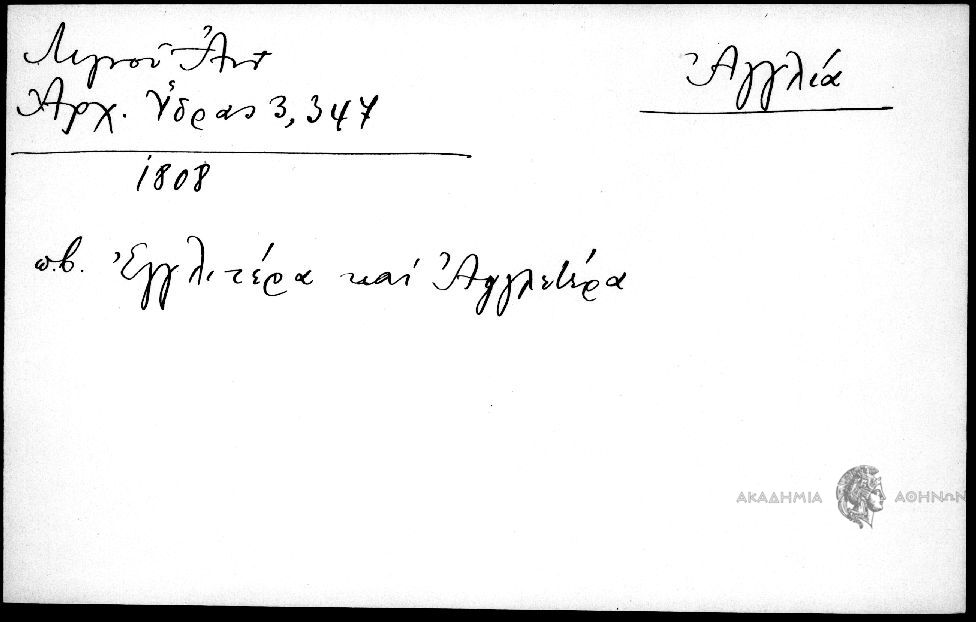 Λιγνοῦ Ἀντ
Ἀρχ. Ὕδρας 3, 347
Ἀγγλία
1808
π.β. Ἐγγλιτέρα καί Ἀγγλετέρα
ΑΚΑΔΗΜΙΑ ΑΘΗΝΩΝ